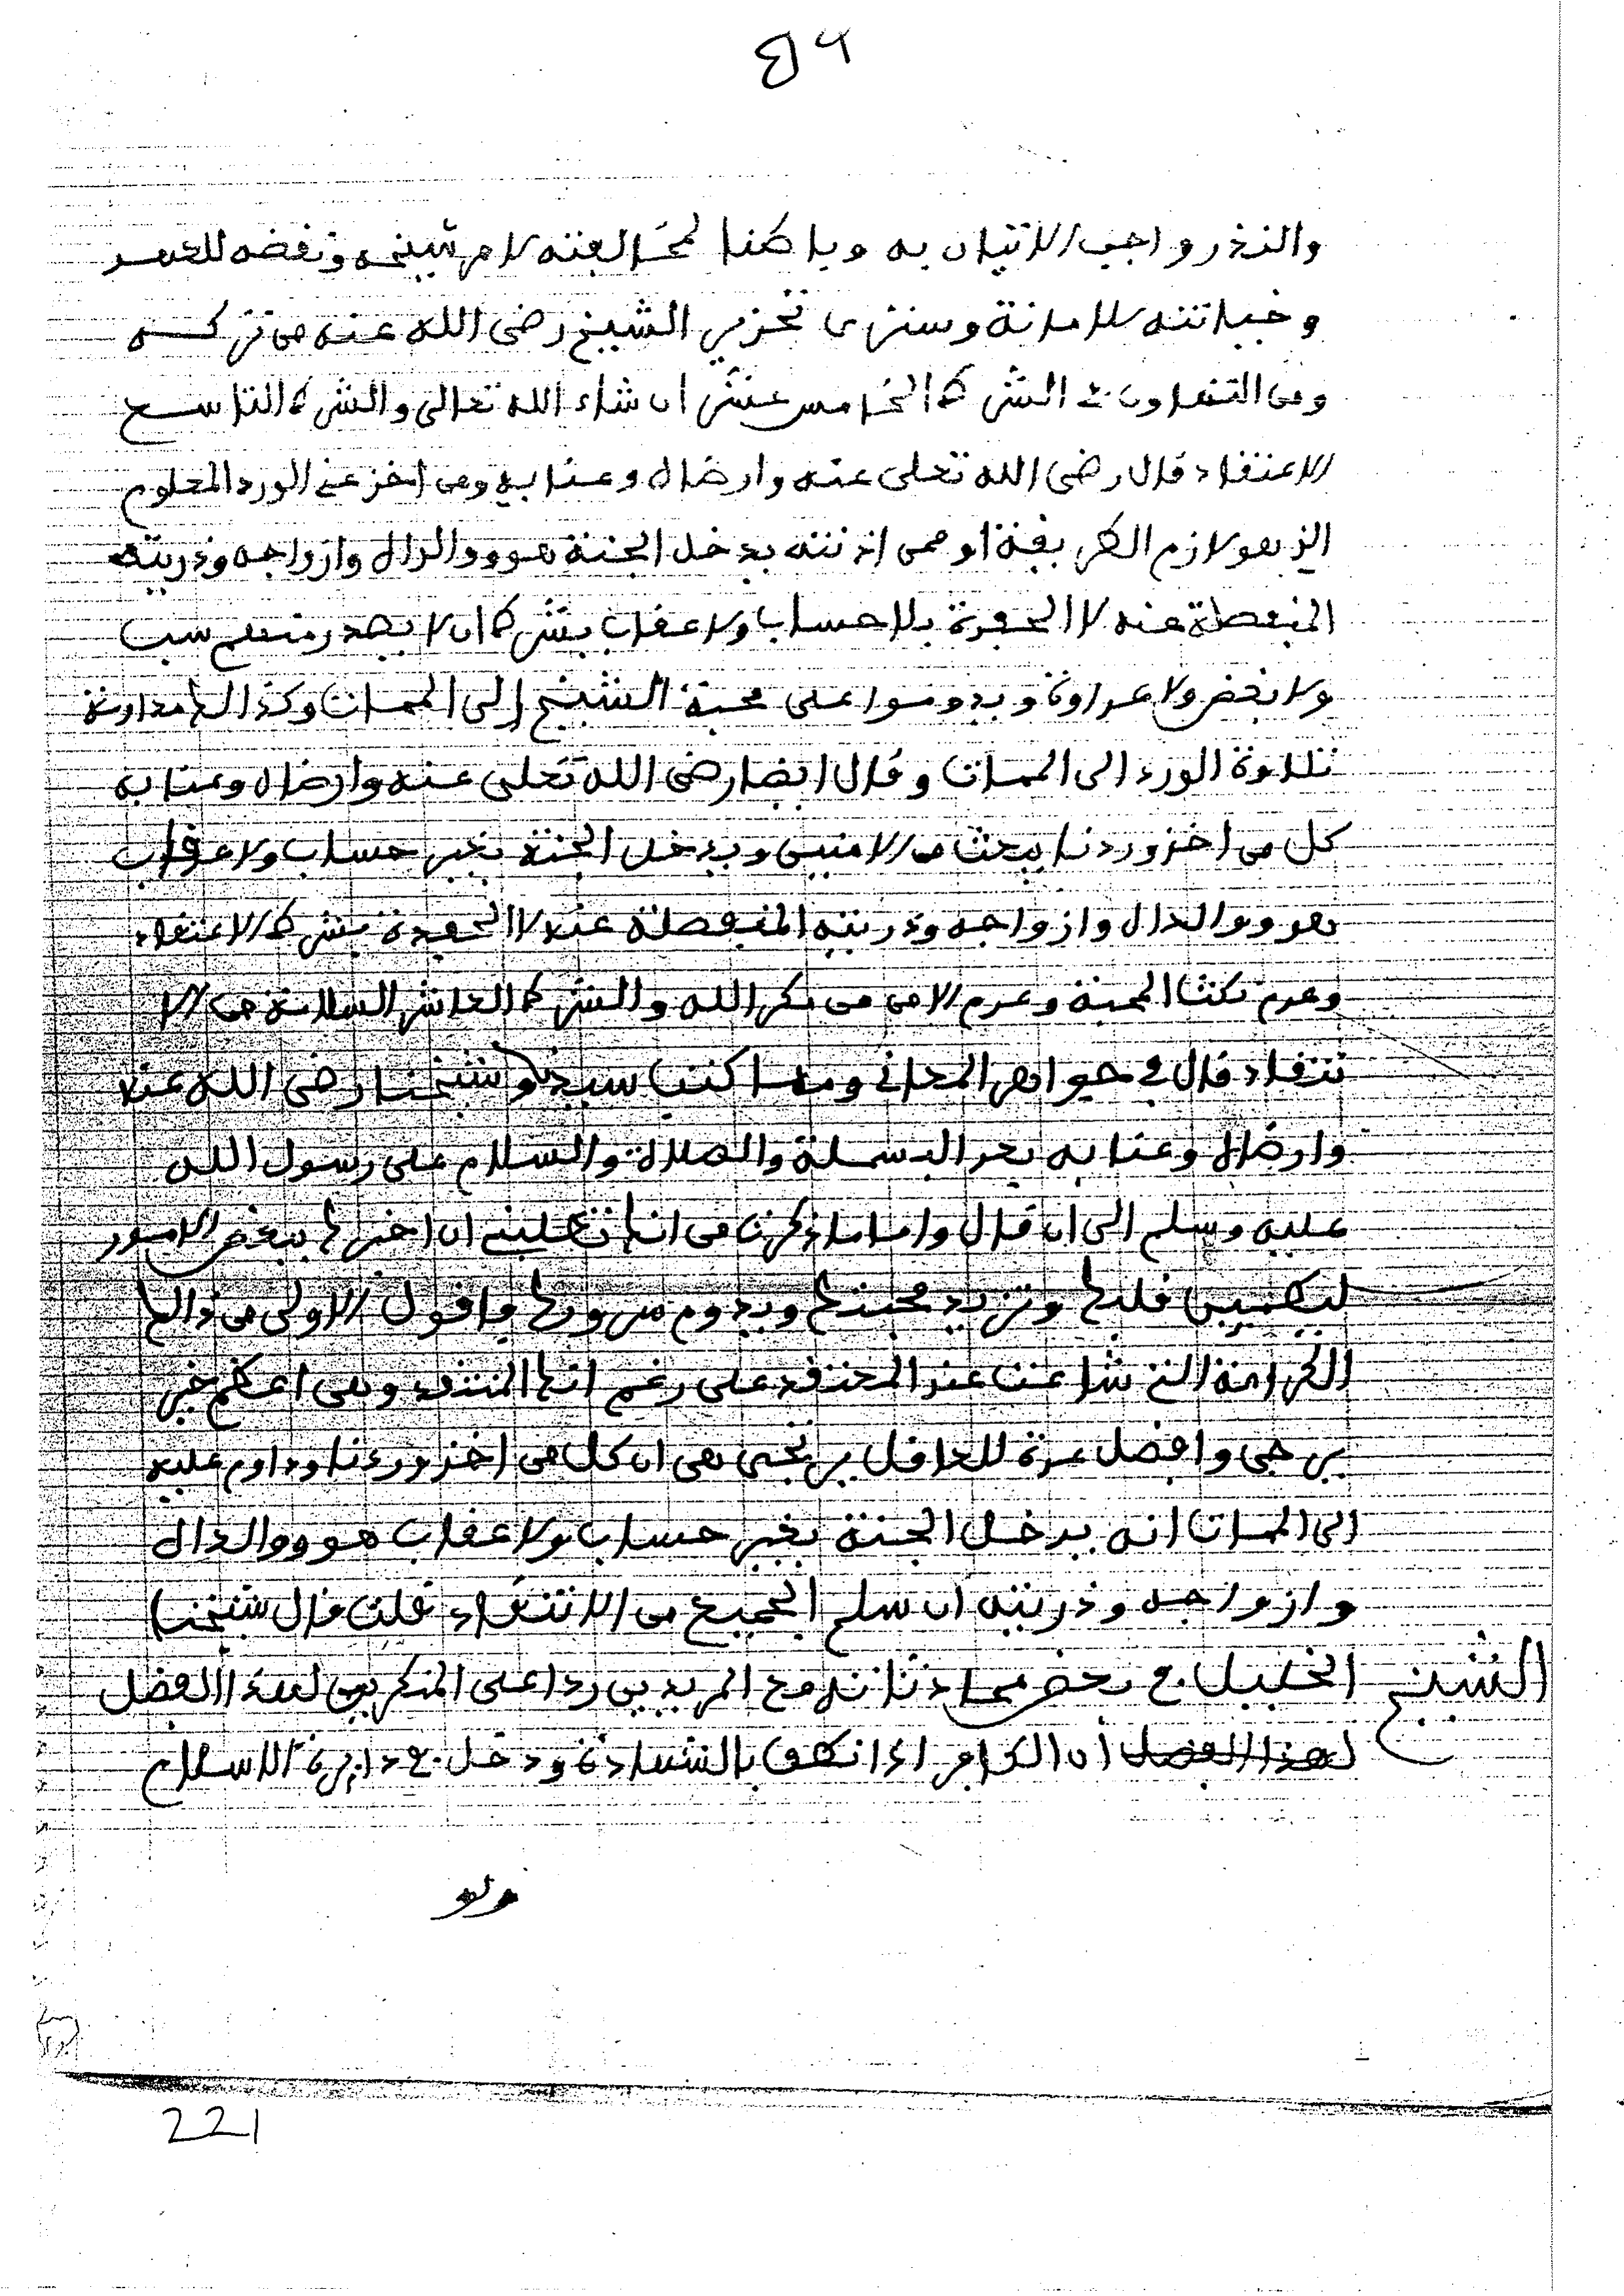 والنذر واجب الاتيان به وباطنا لمخالفته لامر شيخه ونقضه للعهد
وخيانته للامانة وسترى تحذير الشيخ رضى الله عنه من تركه
ومن التهاون في الشرط الخامس عشر ان شاء الله تعالى والشرط التاسع
الاعتقاد قال رضى الله تعلى عنه وارضاه وعنا به ومن اخذ عني الورد المعلوم
الذي هو لازم الطريقة او عمن اذنته يدخل الجنة هو ووالداه وازواجه وذريته
المنفصلة عنه لا الحفدة بلا حساب ولا عقاب بشرط ان لا يصدر منهم سب
ولا بغض ولا عداوة ويدوموا على محبة الشيخ الى الممات وكذالك مداومة
تلاوة الورد الى الممات وقال ايضا رضى الله تعلى عنه وارضاه وعنا به
كل من اخذ وردنا يبعث من الامنين ويدخل الجنة بغير حساب ولا عقاب
هو ووالداه وازواجه وذريته المنفصلة عنه لا الحفدة بشرط الاعتقاد
وعدم نكث المحبة وعدم الامن من مكر الله والشرط العاشر السلامة من الا
نتقاد قال في جواهر المعاني ومما كتب سيدنا وشيخنا رضى الله عنه
وارضاه وعنا به بعد البسملة والصلاة والسلام على رسول الله
عليه وسلم الى ان قال واما ما ذكرت من انك تطلبني ان اخبرك ببعض الامور
ليطمين قلبك وتزيد محبتك ويدوم سرورك فاقول الاولى من ذالك
الكرامة التي شاعت عند المعتقد على رغم انف المنتقد وهى اعظم خير
يرجى وافضل عدة للعاقل يرتجى هى ان كل من اخذ وردنا وداوم عليه
الى الممات انه يدخل الجنة بغير حساب ولا عقاب هو ووالداه
وازواجه وذريته ان سلم الجميع من الانتقاد قلت قال شيخنا
الشيخ الخليل في بعض محادثاته مع المريدين ردا على المنكرين لهذا الفضل
لهذا الفضل ان الكافر اذا نطق بالشهادة ودخل في دايرة الاسلام
ولو
221